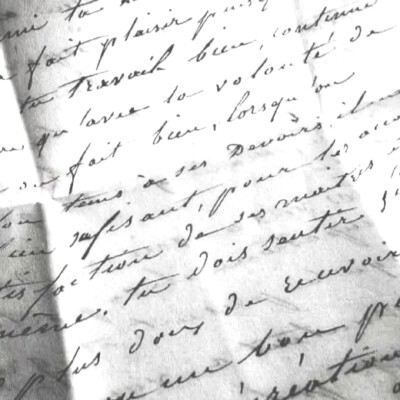 mi ta
fait plaisir puisq
tu travail bien, continue
qu'avec la volonté de
se fait bien, lorsqu'on
tems à ses devoirs, il
suffisant, pour les
tisfaction de ses maîtres
même, tu dois sentir
plus doux de recevoir
un bon
création